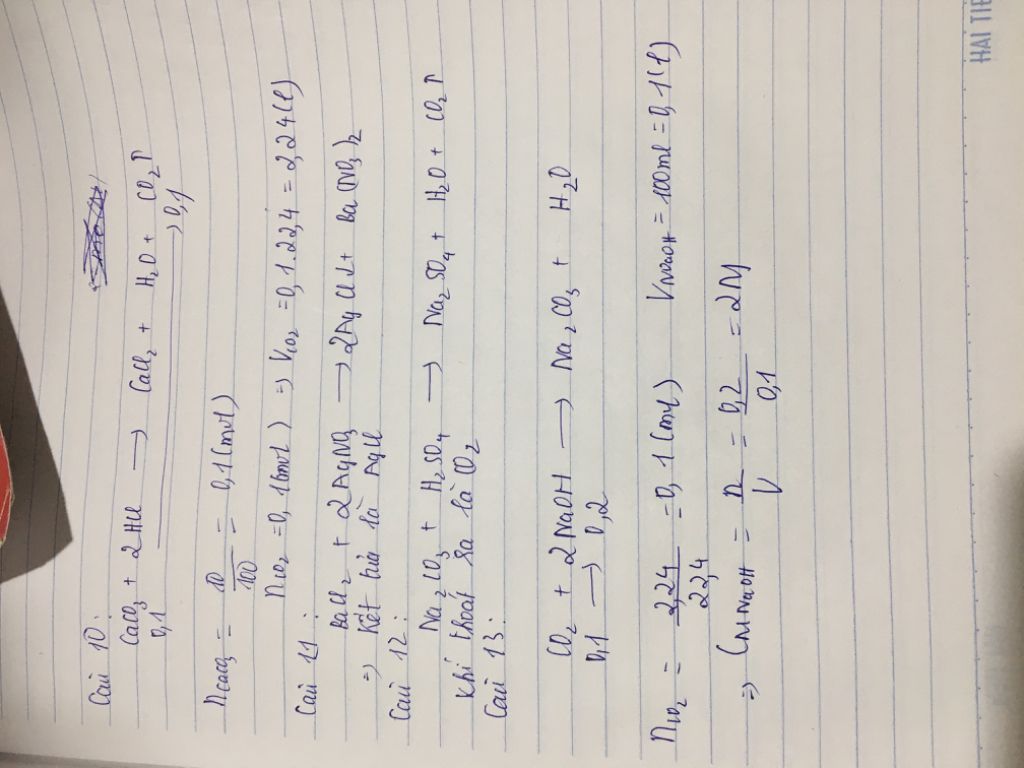 Câu 10:
CaCO3 + 2HCl → CaCl2 + H2O + CO2↑
0,1 → 0,1
nCaCO3 = 10/100 = 0,1 (mol)
nCO2 = 0,1 (mol) => VCO2 = 0,1.22,4 = 2,24 (l)
Câu 11:
BaCl2 + 2AgNO3 → 2AgCl↓ + Ba(NO3)2
=> Kết tủa là AgCl
Câu 12:
Na2CO3 + H2SO4 → Na2SO4 + H2O + CO2↑
Khí thoát ra là CO2
Câu 13:
CO2 + 2NaOH → Na2CO3 + H2O
0,1 → 0,2
nCO2 = 2,24/22,4 = 0,1 (mol) VNaOH = 100ml = 0,1 (l)
=> CM NaOH = n/V = 0,2/0,1 = 2M
HAI TIE